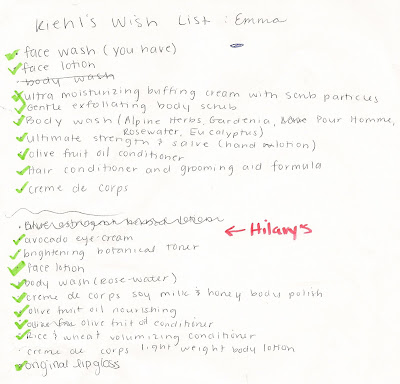 Kiehl's Wish List: Emma
face wash (you have)
face lotion
body wash
ultra moisturizing buffing cream with scrub particles
Gentle exfoliating body scrub
Body wash (Alpine Herbs, Gardenia, Pour Homme,
Rosewater, Eucalyptus)
ultimate strength salve (hand lotion)
olive fruit oil conditioner
Hair conditioner and grooming aid formula
creme de corps
avocado eye cream
← Hilary's
brightening botanical toner
face lotion
body wash (rose-water)
creme de corps soy milk & honey body polish
olive fruit oil nourishing
olive fruit oil conditioner
Rice & wheat volumizing conditioner
creme de corps light weight body lotion
original lip gloss